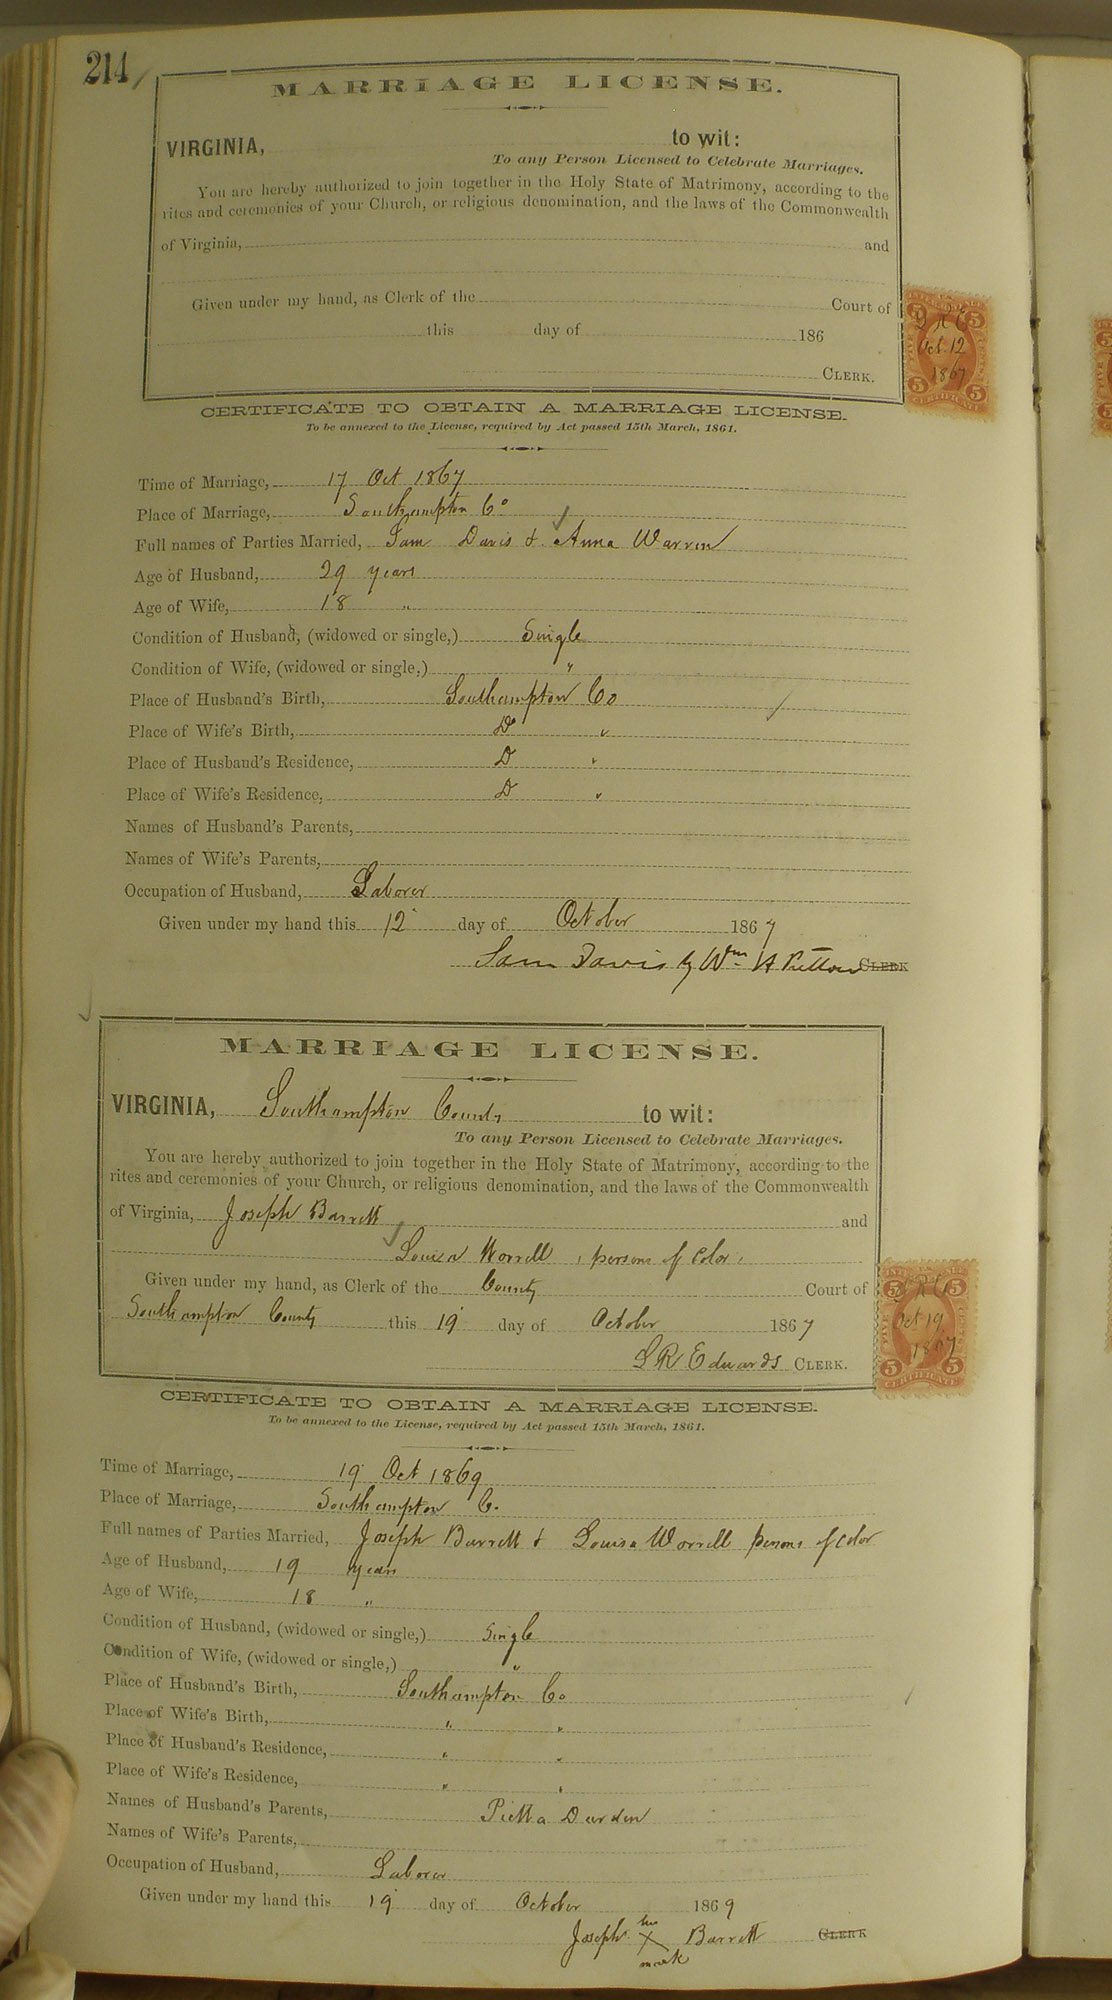 214
MARRIAGE LICENSE.
VIRGINIA, to wit:
To any Person Licensed to Celebrate Marriages.
You are hereby authorized to join together in the Holy State of Matrimony, according to the
rites and ceremonies of your Church, or religious denomination, and the laws of the Commonwealth
of Virginia, and
Given under my hand, as Clerk of the Court of
this day of 186
CLERK.
5 5
Oct. 12
1867
5 5
CERTIFICATE
CERTIFICATE TO OBTAIN A MARRIAGE LICENSE.
To be annexed to the License, required by Act passed 15th March, 1861.
Time of Marriage, 17 Oct 1867
Place of Marriage, Southampton Co
Full names of Parties Married, Sam Davis & Anna Warren
Age of Husband, 29 years
Age of Wife, 18 "
Condition of Husband, (widowed or single,) Single
Condition of Wife, (widowed or single,) "
Place of Husband's Birth, Southampton Co
Place of Wife's Birth, Do "
Place of Husband's Residence, D "
Place of Wife's Residence, D "
Names of Husband's Parents,
Names of Wife's Parents,
Occupation of Husband, Laborer
Given under my hand this 12 day of October 1867
Sam Davis by Wm H CLERK
MARRIAGE LICENSE.
VIRGINIA, Southampton County to wit:
To any Person Licensed to Celebrate Marriages.
You are hereby authorized to join together in the Holy State of Matrimony, according to the
rites and ceremonies of your Church, or religious denomination, and the laws of the Commonwealth
of Virginia, Joseph Barrett and
Louisa Worrell , persons of Color,
Given under my hand, as Clerk of the County Court of
Southampton County this 19 day of October 1867
L R Edwards CLERK.
5 5
Oct 19
1867
5 5
CERTIFICATE
CERTIFICATE TO OBTAIN A MARRIAGE LICENSE.
To be annexed to the License, required by Act passed 15th March, 1861.
Time of Marriage, 19 Oct 1869
Place of Marriage, Southampton Co
Full names of Parties Married, Joseph Barrett & Louisa Worrell persons of color
Age of Husband, 19 years
Age of Wife, 18 "
Condition of Husband, (widowed or single,) Single
Condition of Wife, (widowed or single,) "
Place of Husband's Birth, Southampton Co
Place of Wife's Birth, " "
Place of Husband's Residence, " "
Place of Wife's Residence, " "
Names of Husband's Parents, Darden
Names of Wife's Parents,
Occupation of Husband, Laborer
Given under my hand this 19 day of October 1869
Joseph his X mark Barrett CLERK